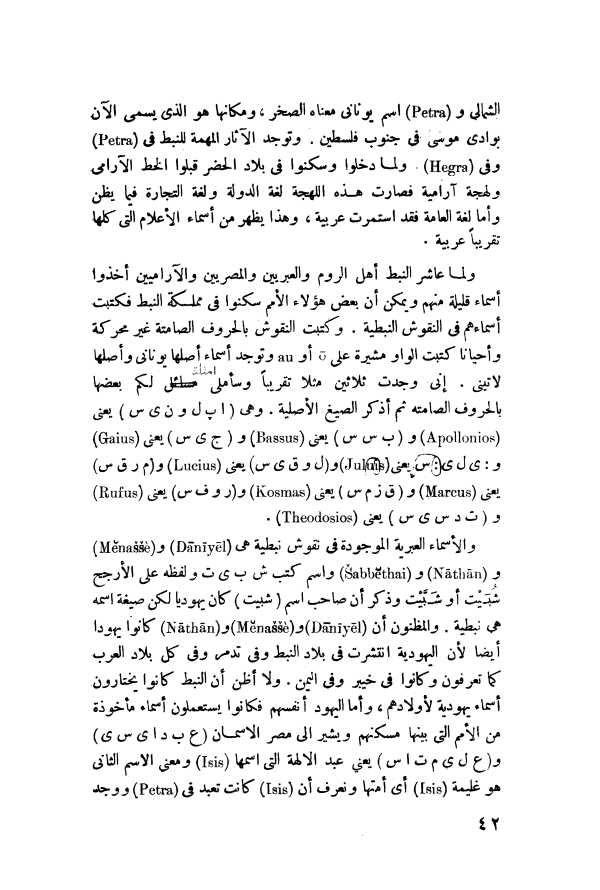 الشمالي و (Petra) اسم يونانى معناه الصخر ، ومكانها هو الذى يسمى الآن
بوادى موسى فى جنوب فلسطين . وتوجد الآثار المهمة للنبط فى (Petra)
وفى (Hegra) . ولمـا دخلوا وسكنوا فى بلاد الحضر قبلوا الخط الآرامى
ولهجة آرامية فصارت هـذه اللهجة لغة الدولة ولغة التجارة فيما يظن
وأما لغة العامة فقد استمرت عربية ، وهذا يظهر من أسماء الأعلام التى كلها
تقريباً عربية .
ولمـا عاشر النبط أهل الروم والعبريين والمصريين والآراميين أخذوا
أسماء قليلة منهم ويمكن أن بعض هؤلاء الأمم سكنوا فى مملكة النبط فكتبت
أسماءهم فى النقوش النبطية . وكتبت النقوش بالحروف الصامتة غير محركة
وأحيانا كتبت الواو مشيرة على ō أو au وتوجد أسماء أصلها يونانى وأصلها
لاتينى . إنى وجدت ثلاثين مثلا تقريباً وسأملى امثلة لكم بعضها
بالحروف الصامته ثم أذكر الصيغ الأصلية . وهى ( ا پ ل و ن ى س ) يعنى
(Apollonios) و ( ب س س ) يعنى (Bassus) و ( ج ى س ) يعنى (Gaius)
و : ى ل ى : س يعنى (Julius) و(ل و ق ى س) يعنى (Lucius) و(م ر ق س)
يعنى (Marcus) و ( ق ز م س ) يعنى (Kosmas) و(ر و ف س) يعنى (Rufus)
و ( ت د س ى س ) يعنى (Theodosios) .
والأسماء العبرية الموجودة فى نقوش نبطية هى (Dānīyēl) و(Mĕnaššè)
و (Nāthān) و (Šabbĕthai) واسم كتب ش ب ى ت و لفظه على الأرجح
شُبَيْت أو شَبَّيْت وذكر أن صاحب اسم ( شبيت ) كان يهوديا لكن صيغة اسمه
هى نبطية . والمظنون أن (Dānīyēl) و(Mĕnaššè) و(Nāthān) كانوا يهودا
أيضا لأن اليهودية انتشرت فى بلاد النبط وفى تدمر وفى كل بلاد العرب
كما تعرفون وكانوا فى خيبر وفى اليمن . ولا أظن أن النبط كانوا يختارون
أسماء يهودية لأولادهم ، وأما اليهود أنفسهم فكانوا يستعملون أسماء مأخوذة
من الأمم التى بينها مسكنهم ويشير الى مصر الاسمـان (ع ب د ا ى س ى )
و(ع ل ى م ت ا س ) يعني عبد الالهة التى اسمها (Isis) ومعنى الاسم الثانى
هو غليمة (Isis) أى أمتها ونعرف أن (Isis) كانت تعبد فى (Petra) ووجد
٤٢